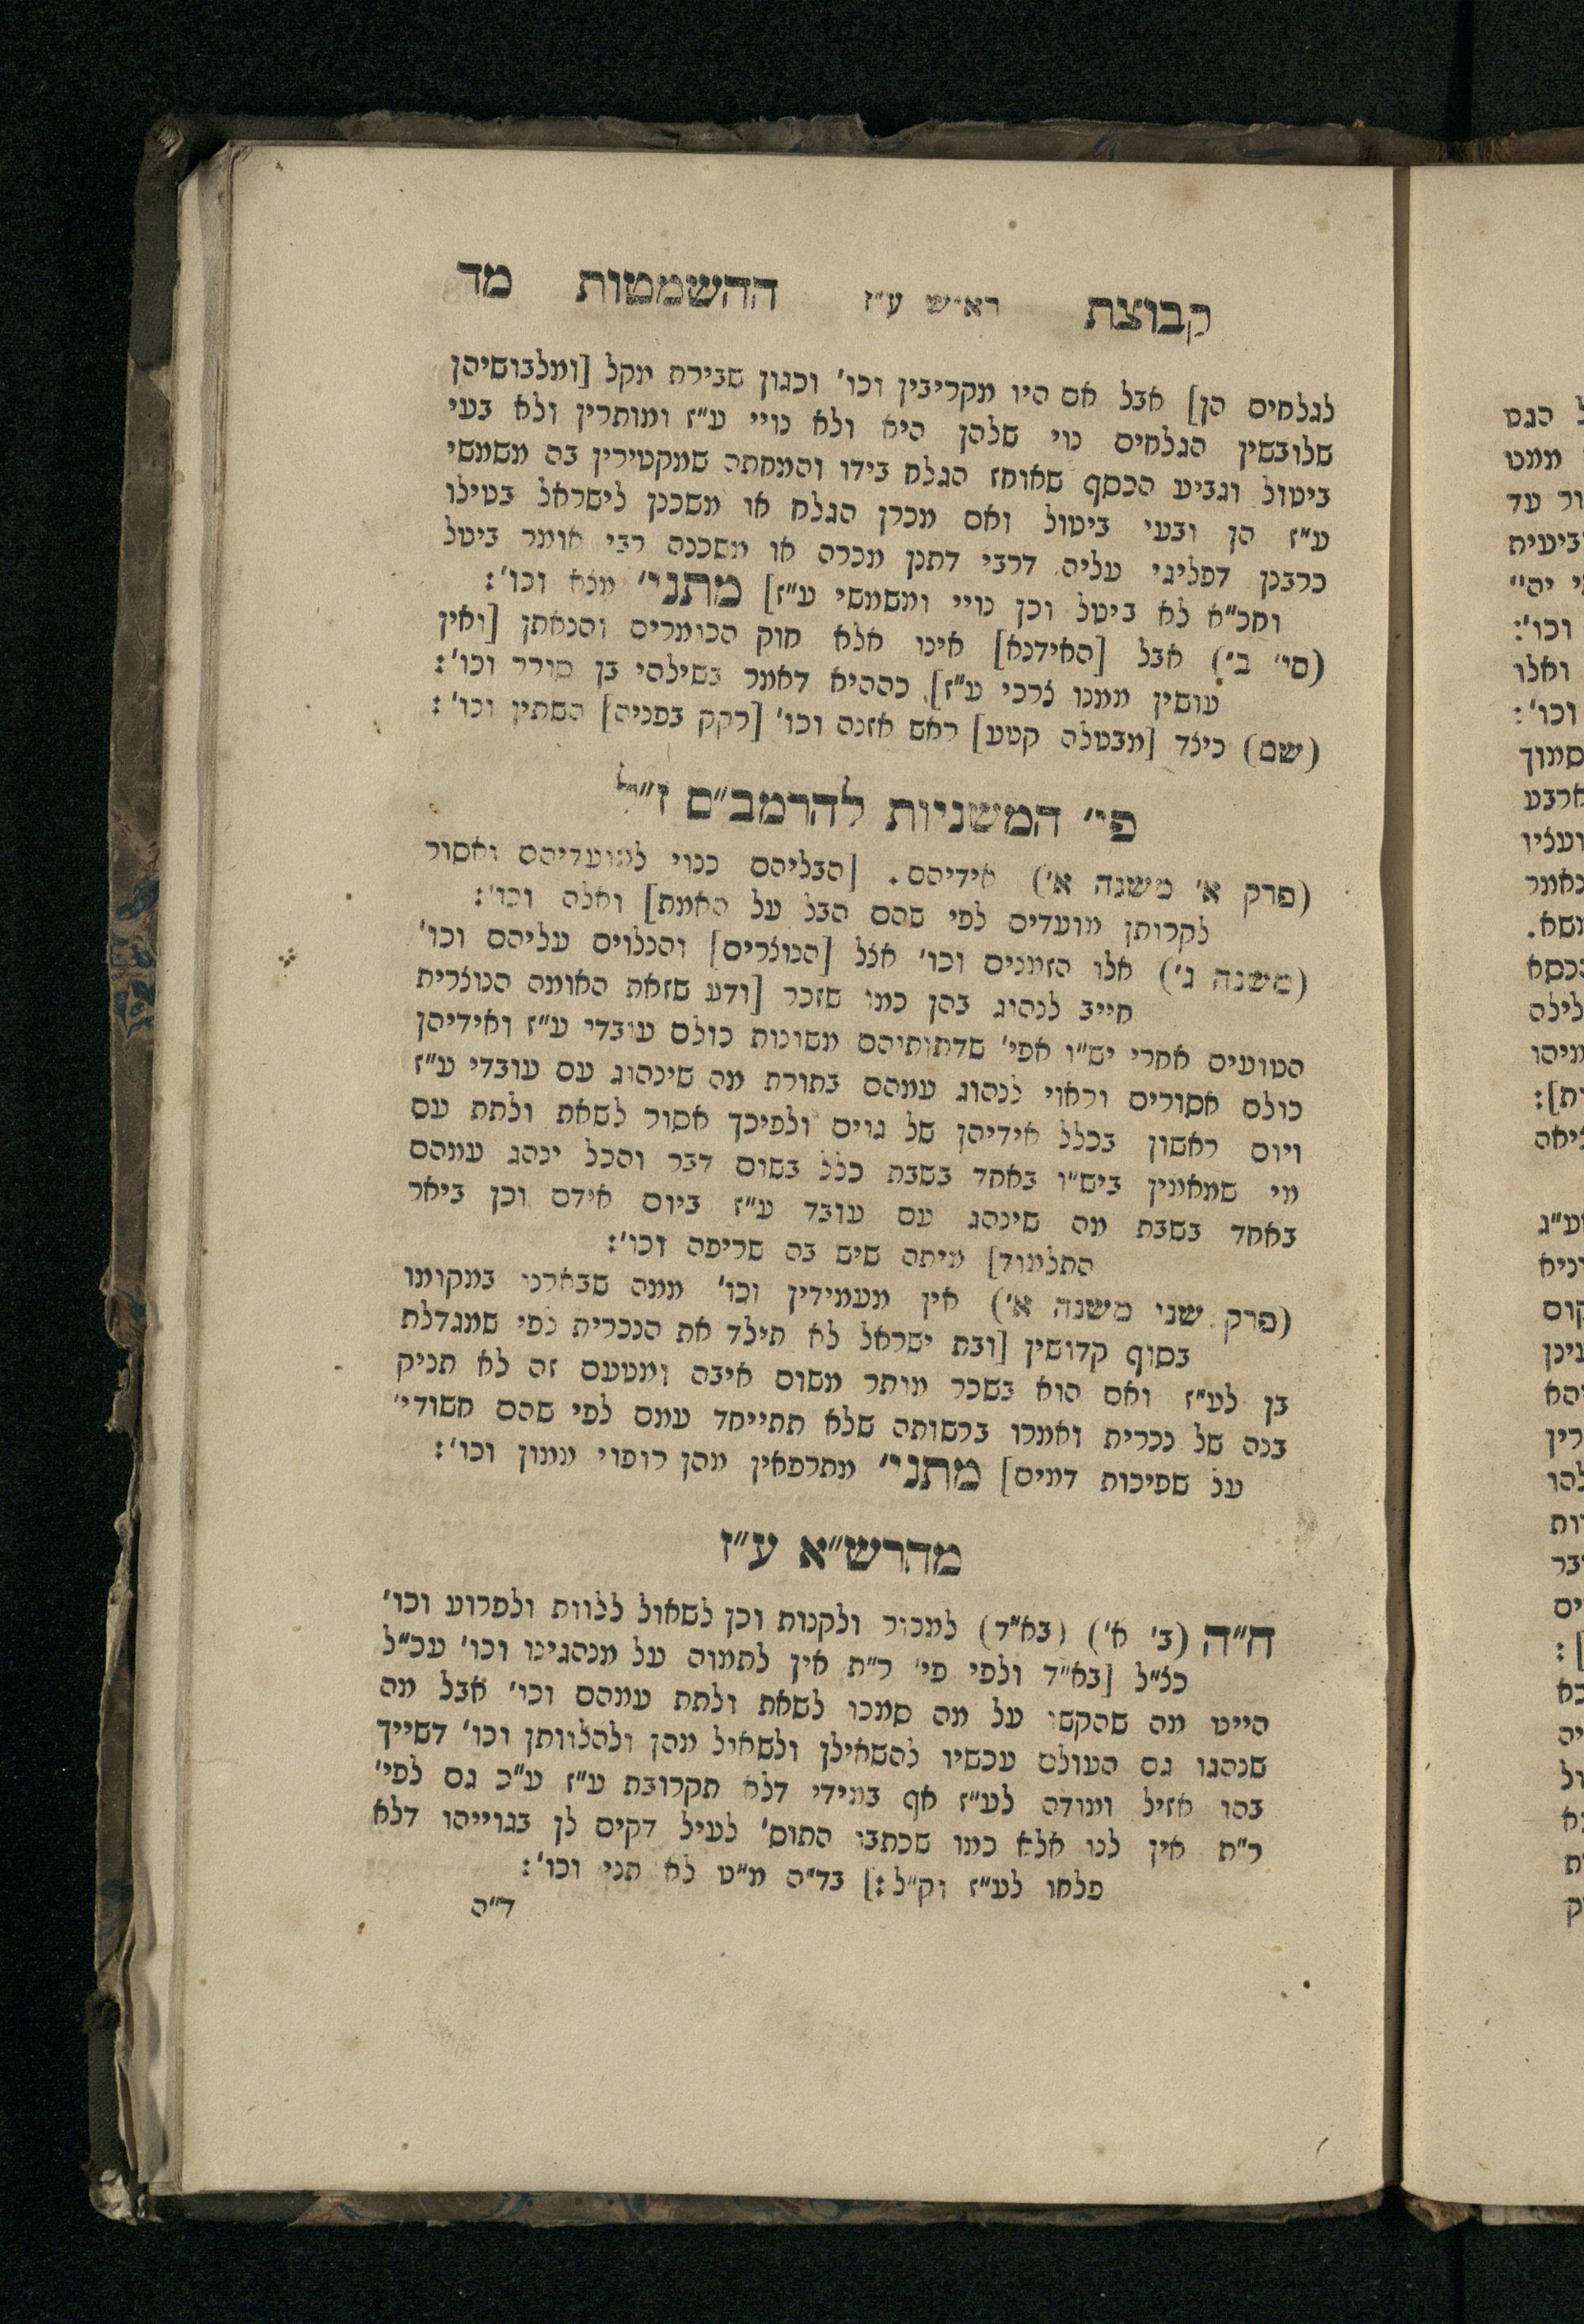 קבוצת רא״ש ע״ז ההשמטות מד
לגלחים הן] אבל אם היו מקריבין וכו' וכגון שבירת מקל [ומלבושיהן
שלובשין הגלחים נוי שלהן היא ולא נויי ע״ז ומותרין ולא בעי
ביטול וגביע הכסף שאוחז הגלח בידו והמחתה שמקטירין בה משמשי
ע״ז הן ובעי ביטול ואם מכרן הגלח או משכנן לישראל בטילו
כרבנן דפליגי עליה דרבי דתנן מכרה או משכנה רבי אומר ביטל
וחכ״א לא ביטל וכן נויי ומשמשי ע״ז] מתני' מצא וכו':
(סי' ב') אבל [האידנא] אינו אלא חוק הכומרים והנאתן [ואין
עושין ממנו צרכי ע״ז] כההיא דאמר בשילהי בן סורר וכו':
(שם) כיצד [מבטלה קטע] ראש אזנה וכו' [רקק בפניה] השתין וכו':
פי' המשניות להרמב״ם ז״ל
(פרק א' משנה א') אידיהם. [הבליהם כנוי למועדיהם ואסור
לקרותן מועדים לפי שהם הבל על האמת] ואלה וכו':
(משנה ג') אלו הזמנים וכו' אצל [הנוצרים] והנלוים עליהם וכו'
חייב לנהוג בהן כמו שזכר [ודע שזאת האומה הנוצרית
הטועים אחרי יש״ו אפי' שדתותיהם משונות כולם עובדי ע״ז ואידיהן
כולם אסורים וראוי לנהוג עמהם בתורת מה שינהוג עם עובדי ע״ז
ויום ראשון בכלל אידיהן של גוים ולפיכך אסור לשאת ולתת עם
מי שמאמין ביש״ו באחד בשבת כלל בשום דבר והכל ינהג עמהם
באחד בשבת מה שינהג עם עובד ע״ז ביום אידם וכן ביאר
התלמוד] מיתה שיש בה שריפה וכו':
(פרק שני משנה א') אין מעמידין וכו' ממה שבארנו במקומו
בסוף קדושין [ובת ישראל לא תילד את הנכרית לפי שמגדלת
בן לע״ז ואם הוא בשכר מותר משום איבה ומטעם זה לא תניק
בנה של נכרית ואמרו ברשותה שלא תתייחד עמם לפי שהם חשודי'
על שפיכות דמים] מתני' מתרפאין מהן רופוי ממון וכו':
מהרש״א ע״ז
ח״ה (ב' א') (בא״ד) למכור ולקנות וכן לשאול ללוות ולפרוע וכו'
כצ״ל [בא״ד ולפי פי' ר״ת אין לתמוה על מנהגינו וכו' עכ״ל
היינו מה שהקשו על מה סמכו לשאת ולתת עמהם וכו' אבל מה
שנהגו גם העולם עכשיו להשאילן ולשאול מהן ולהלוותן וכו' דשייך
בהו אזיל ומודה לע״ז אף במידי דלא תקרובת ע״ז ע״כ גם לפי'
ר״ת אין לנו אלא כמו שכתבו התוס' לעיל דקים לן בגוייהו דלא
פלחו לע״ז וק״ל:] בד״ה מ״ט לא תני וכו':
ד״ה